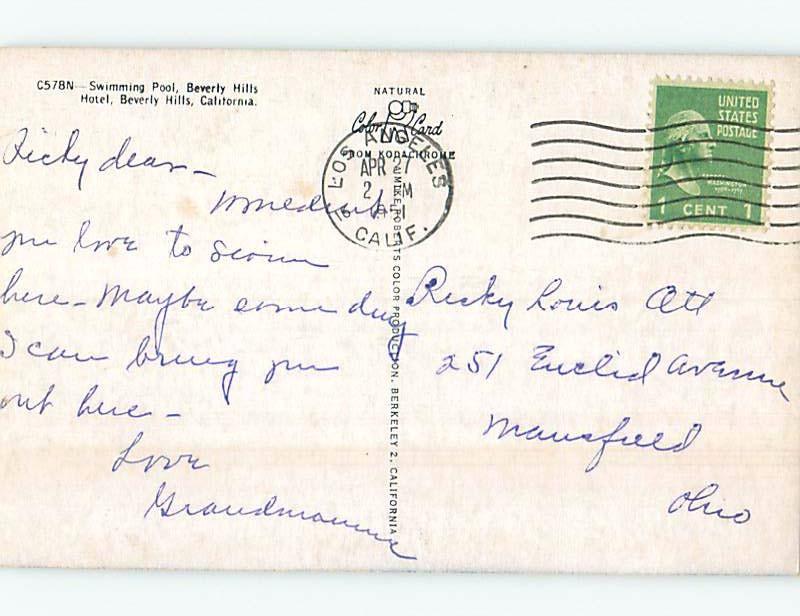 C578N—Swimming Pool, Beverly Hills
Hotel, Beverly Hills, California.
NATURAL
Color Card
FROM KODACHROME
MIKE ROBERTS COLOR PRODUCTION, BERKELEY 2, CALIFORNIA
LOS ANGELES
APR 27
CALIF.
UNITED
STATES
POSTAGE
GEORGE
WASHINGTON
1 CENT 1
Ricky dear—
Wouldn't
you love to swim
here—Maybe some day
I can bring you
out here—
Love
Grandmamma
Ricky Louis Ott
251 Euclid Avenue
Mansfield
Ohio